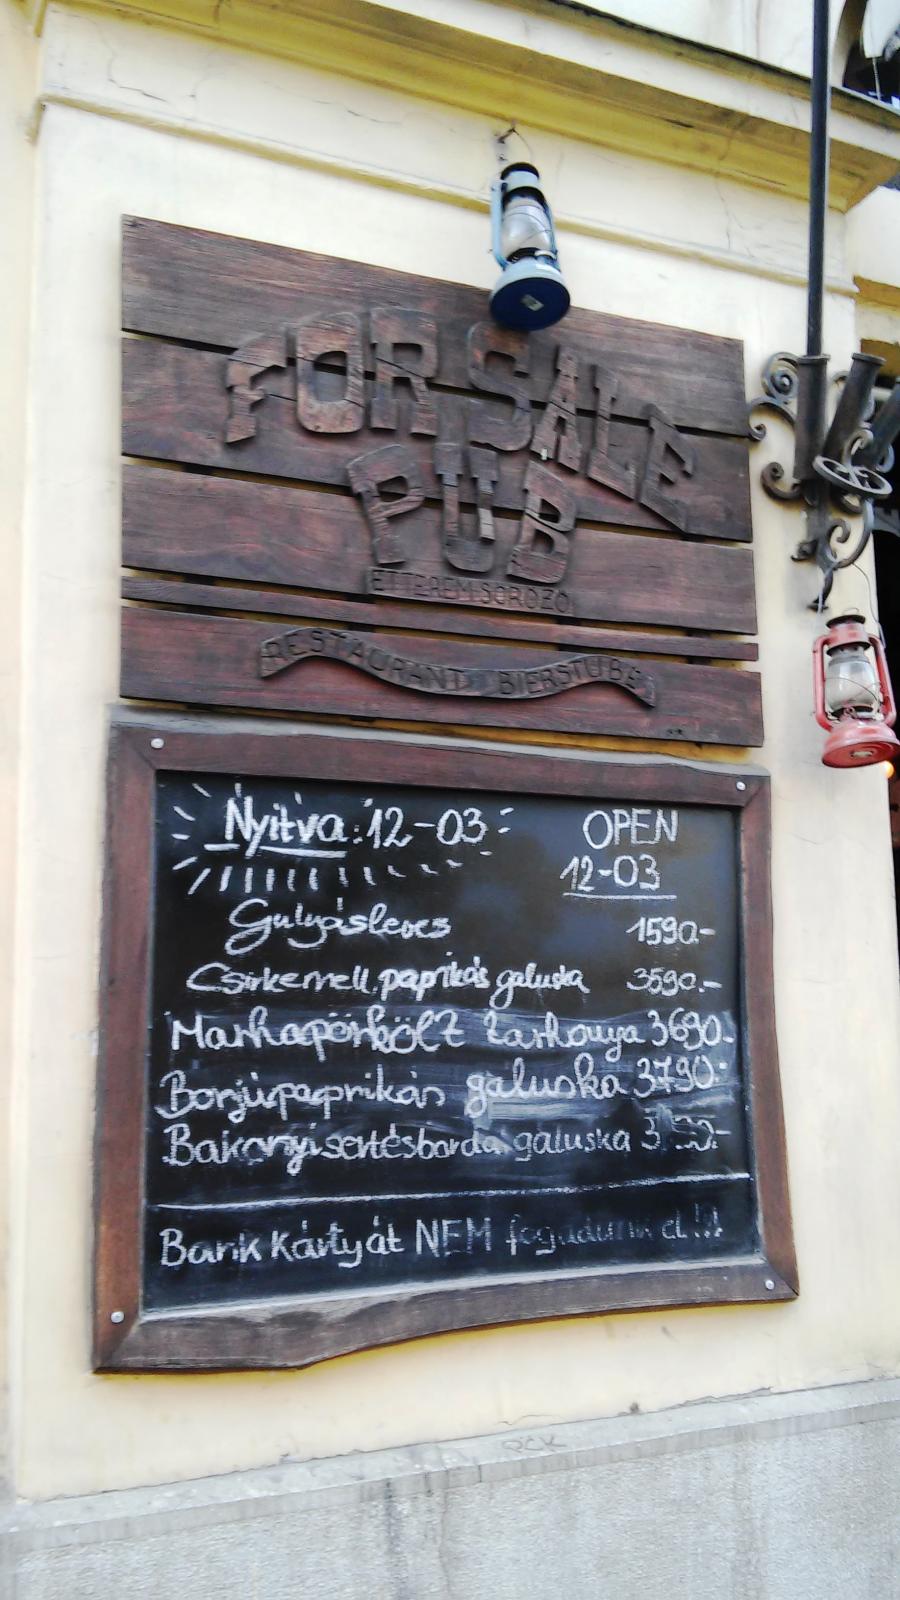 FOR SALE
PUB
ETTEREM SÖRÖZŐ
RESTAURANT BIERSTUBE
Nyitva: 12-03
OPEN
12-03
Gulyásleves 1590.-
Csirkemell paprikás galuska 3590.-
Marhapörkölt tarhonya 3690.-
Borjúpaprikás galuska 3790.-
Bakonyi sertésborda galuska
Bank Kártyát NEM fogadunk el!!!